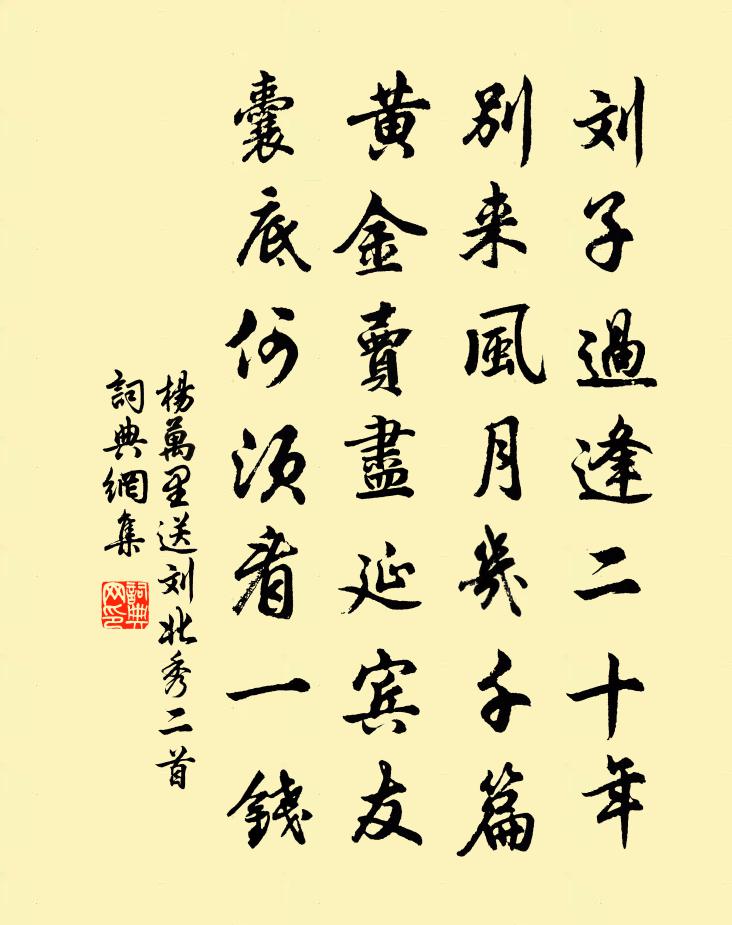 刘子過逢二十年
別来風月幾千篇
黄金賣盡延賓友
囊底何須看一錢
楊萬里送刘北秀二首
詞典網集
詞典网印